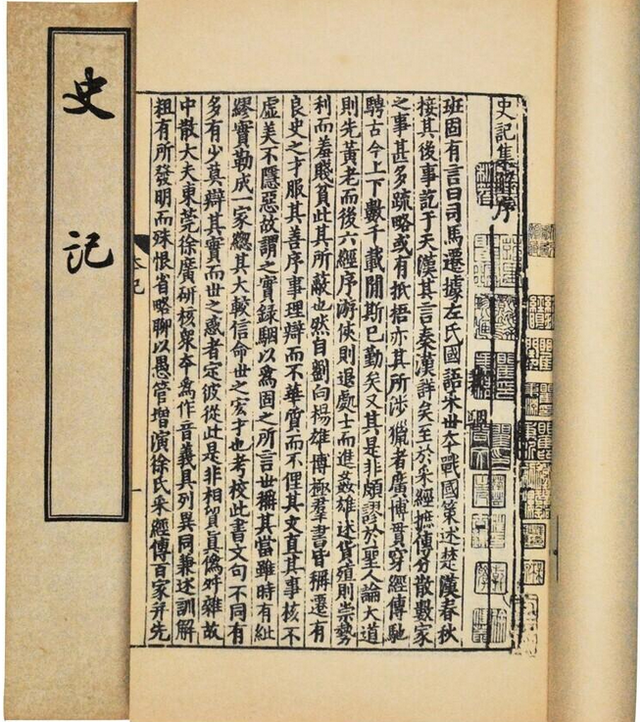 史記集解序
班固有言曰司馬遷據左氏國語采丗夲戰國策述楚漢春秋
接其後事訖于天漢其言秦漢詳矣至於采經摭傳分散數家
之事甚多疏略或有抵梧亦其所涉獵者廣博貫穿經傳馳
騁古今上下數千載閒斯已勤矣又其是非頗謬於聖人論大道
則先黃老而後六經序游俠則退處士而進姦雄述貨殖則崇勢
利而羞賤貧此其所蔽也然自劉向楊雄博極羣書皆稱遷有
良史之才服其善序事理辯而不華質而不俚其文直其事核不
虛美不隱惡故謂之實錄駰以爲固之所言世稱其當雖時有紕
繆實勒成一家緫其大較信命世之宏才也考校此書文句不同有
多有少莫辯其實而世之惑者定彼從此是非相貿眞僞舛雜故
中散大夫東莞徐廣研核衆夲爲作音義具列異同兼述訓解
粗有所發明而殊恨省略聊以愚管增演徐氏采經傳百家并先
史記